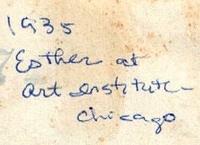 1935
Esther at
Art Institute -
Chicago